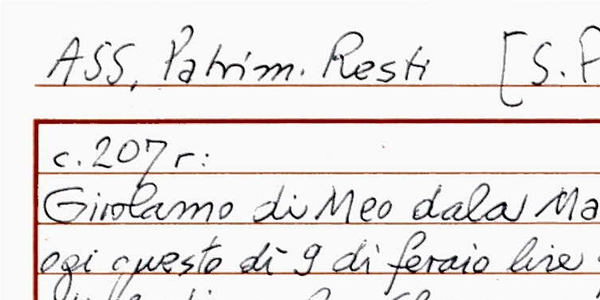 ASS, Patrim. Resti [S. P
c. 207 r:
Girolamo di Meo dala Ma
ogi questo dì 9 di feraio lire